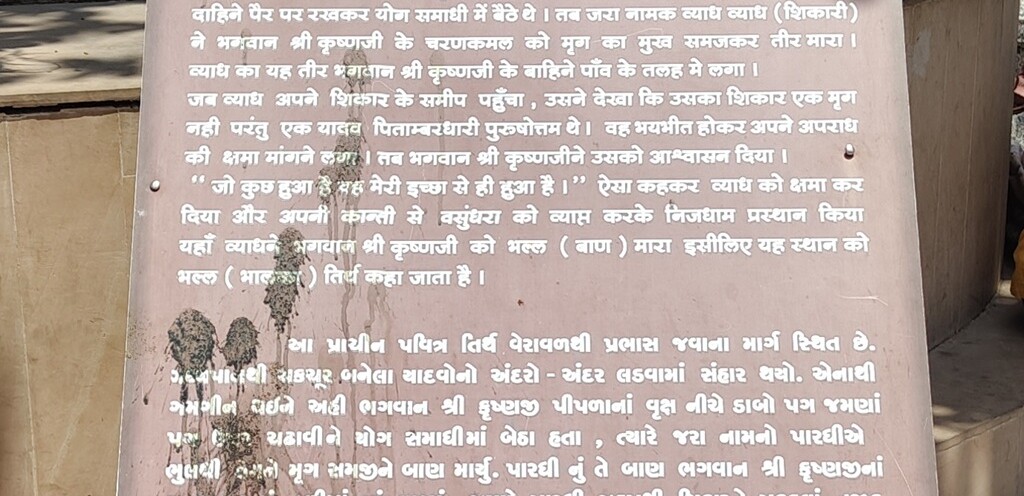 दाहिने पैर पर रखकर योग समाधी में बैठे थे । तब जरा नामक व्याध व्याध (शिकारी)
ने भगवान श्री कृष्णजी के चरणकमल को मृग का मुख समजकर तीर मारा ।
व्याध का यह तीर भगवान श्री कृष्णजी के बाहिने पाँव के तलह मे लगा ।
जब व्याध अपने शिकार के समीप पहुँचा , उसने देखा कि उसका शिकार एक मृग
नही परंतु एक यादव पिताम्बरधारी पुरुषोत्तम थे । वह भयभीत होकर अपने अपराध
की क्षमा मांगने लगा । तब भगवान श्री कृष्णजीने उसको आश्वासन दिया ।
“ जो कुछ हुआ है वह मेरी इच्छा से ही हुआ है ।” ऐसा कहकर व्याध को क्षमा कर
दिया और अपनी कान्ती से वसुंधरा को व्याप्त करके निजधाम प्रस्थान किया
यहाँ व्याधने भगवान श्री कृष्णजी को भल्ल ( बाण ) मारा इसीलिए यह स्थान को
भल्ल ( भालका ) तिर्थ कहा जाता है ।
આ પ્રાચીન પવિત્ર તિર્થ વેરાવળથી પ્રભાસ જવાના માર્ગ સ્થિત છે.
ચકચૂર બનેલા યાદવોનો અંદરો - અંદર લડવામાં સંહાર થયો. એનાથી
ગમગીન થઈને અહી ભગવાન શ્રી કૃષ્ણજી પીપળાનાં વૃક્ષ નીચે ડાબો પગ જમણાં
પગ ઉપર ચઢાવીને યોગ સમાધીમાં બેઠા હતા , ત્યારે જરા નામનો પારધીએ
ભુલથી મૃગ સમજીને બાણ માર્યુ. પારધી નું તે બાણ ભગવાન શ્રી કૃષ્ણજીનાં